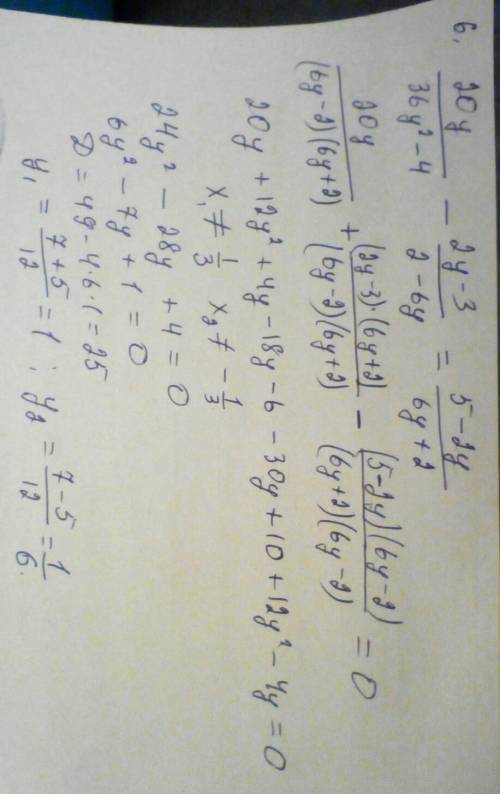 6. 20y/(36y² - 4) - (2y-3)/(2-6y) = (5-2y)/(6y+2)
20y/((6y-2)(6y+2)) + (2y-3)·(6y+2)/((6y-2)(6y+2)) - (5-2y)(6y-2)/((6y+2)(6y-2)) = 0
20y + 12y² + 4y - 18y - 6 - 30y + 10 + 12y² - 4y = 0
x₁ ≠ 1/3 x₂ ≠ - 1/3
24y² - 28y + 4 = 0
6y² - 7y + 1 = 0
D = 49 - 4·6·1 = 25
y₁ = (7+5)/12 = 1 ; y₂ = (7-5)/12 = 1/6.